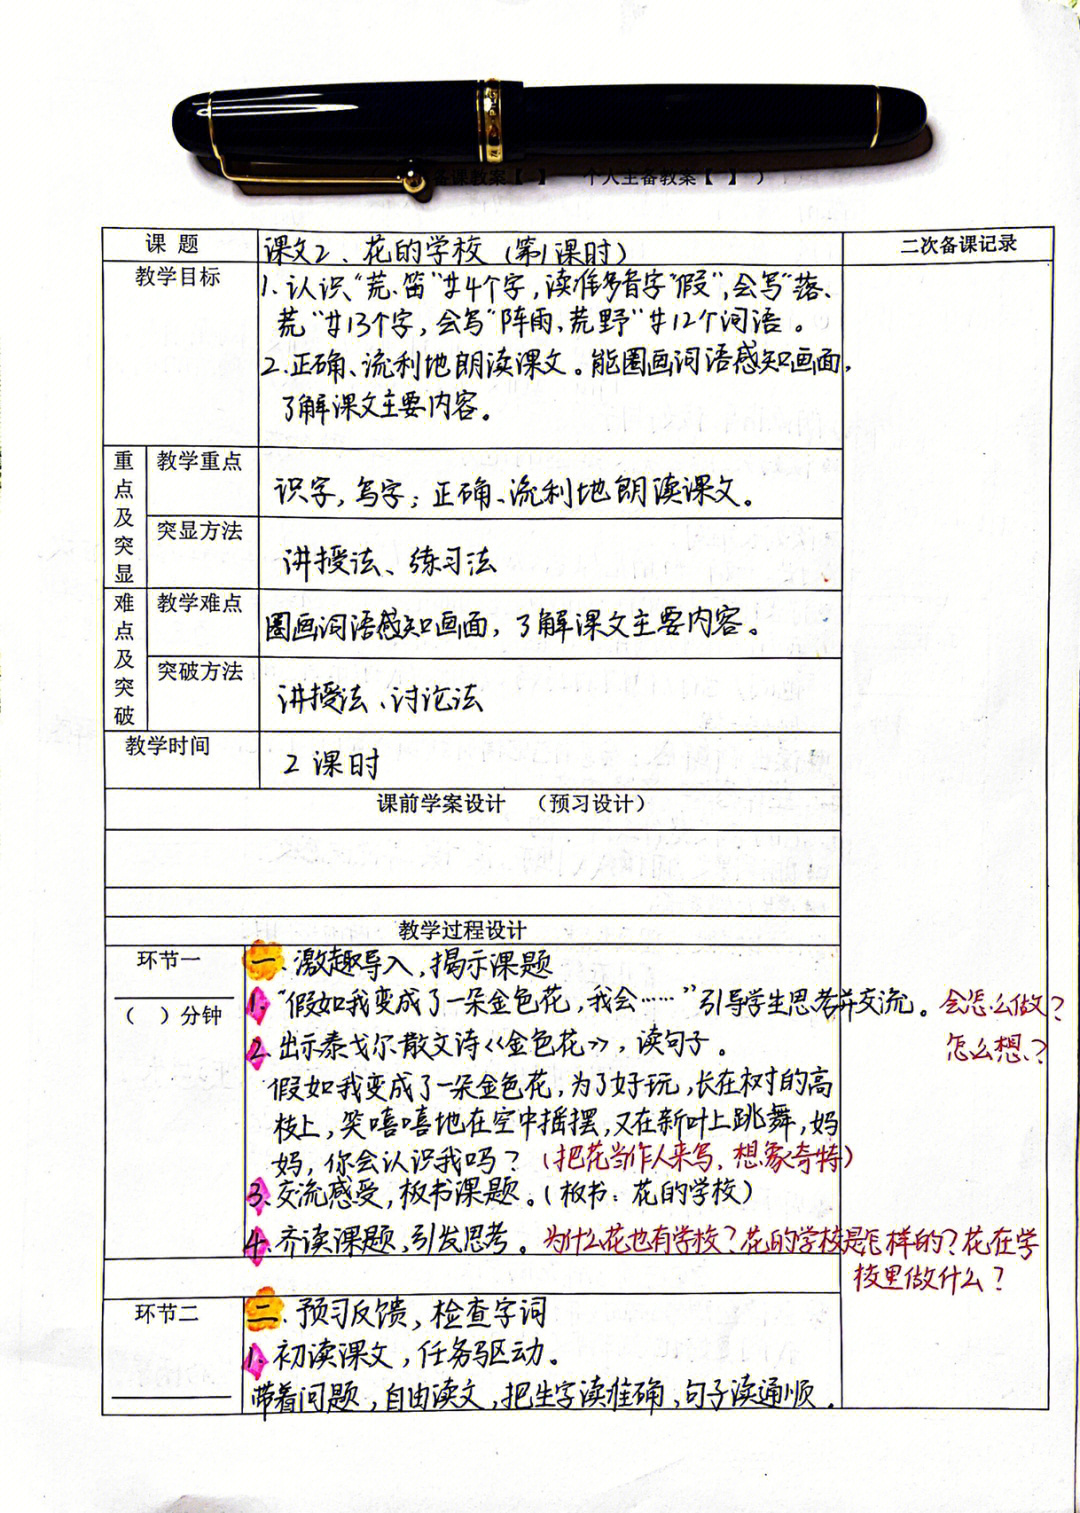 备课教案【 】 个人主备教案【 】 ）
课 题
课文2、花的学校（第1课时）
二次备课记录
教学目标
1.认识“荒、笛”等4个字，读准多音字“假”，会写“落、
荒”等13个字，会写“阵雨、荒野”等12个词语。
2.正确、流利地朗读课文。能圈画词语感知画面，
了解课文主要内容。
重点及突显
教学重点
识字，写字；正确、流利地朗读课文。
突显方法
讲授法、练习法
难点及突破
教学难点
圈画词语感知画面，了解课文主要内容。
突破方法
讲授法、讨论法
教学时间
2 课时
课前学案设计 （预习设计）
教学过程设计
环节一
（ ）分钟
一、激趣导入，揭示课题
1.“假如我变成了一朵金色花，我会……”引导学生思考并交流。会怎么做？
怎么想？
2.出示泰戈尔散文诗《金色花》，读句子。
假如我变成了一朵金色花，为了好玩，长在树的高
枝上，笑嘻嘻地在空中摇摆，又在新叶上跳舞，妈
妈，你会认识我吗？（把花当作人来写，想象奇特）
3.交流感受，板书课题。（板书：花的学校）
4.齐读课题，引发思考。为什么花也有学校？花的学校是怎样的？花在学
校里做什么？
环节二
二、预习反馈，检查字词
1.初读课文，任务驱动。
带着问题，自由读文，把生字读准确，句子读通顺。